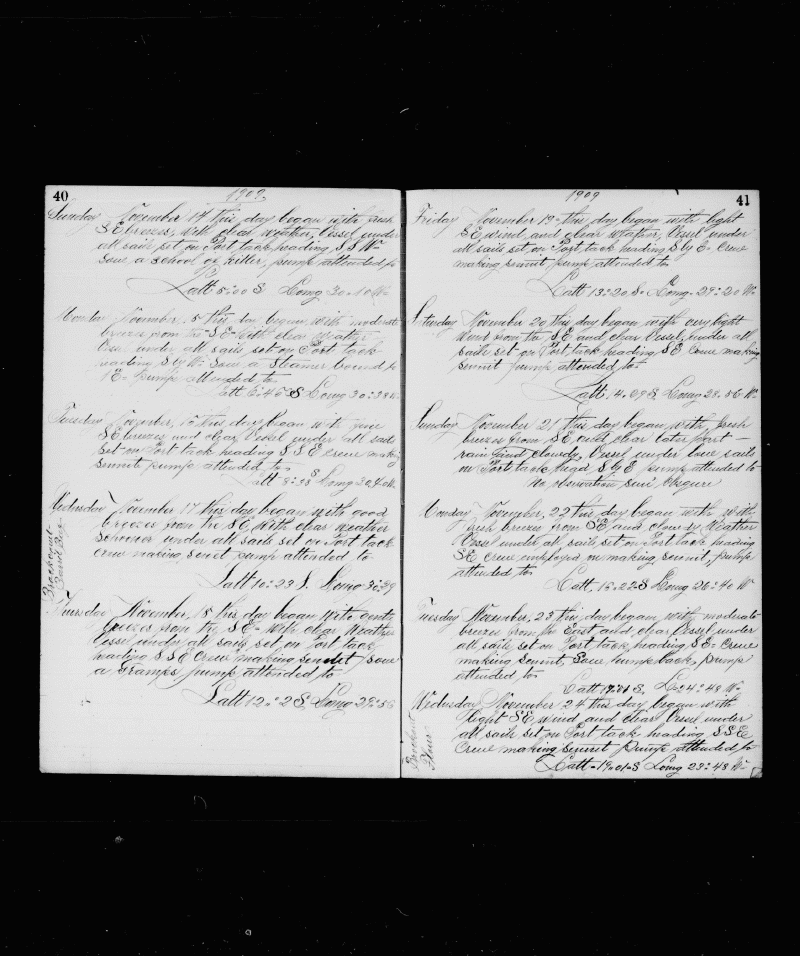 40
1909
Sunday November 14 this day began with fresh
SE breezes, with clear weather, Vessel under
all sails set on Port tack heading SSW
Saw a school of killer, pump attended to
Latt 5:00 S Long 30:10 W
Monday November, 5 this day began with moderate
breezes from the SE with clear weather
Vessel under all sails set on Port tack
heading S Saw a Steamer bound to
pump attended to
Latt 6:45 S Long 30:38 W
Tuesday November, 16 this day began with fine
SE breezes and clear Vessel under all sails
set on Port tack heading SSE Crew making
sennit pump attended to
Latt 8:38 S Long 30:40 W
Wednesday November 17 this day began with good
breezes from the SE with clear weather
Schooner under all sails set on Port tack
crew making senit pump attended to
Latt 10:23 S. Long 30:39
Thursday November, 18 this day began with gentle
breezes from the SE with clear weather
Vessel under all sails set on Port tack
heading SSE Crew making sennit Saw
a Gramps pump attended to
Latt 12:2 S Long 29:56
41
1909
Friday November 19 this day began with light
SE wind and clear weather, Vessel under
all sails set on Port tack heading S by E Crew
making sennit pump attended to
Latt 13:20 S Long 29:20 W
Saturday November 20 this day began with very light
wind from the SE and clear Vessel under all
sails set on Port tack heading SE Crew making
sennit pump attended to
Latt 14:09 S Long 28:56 W
Sunday November 21 this day began with fresh
breezes from SE and clear later part
rain and cloudy, Vessel under low sails
on Port tack head S by E pump attended to
No observation sun obscure
Monday November, 22 this day began with with
fresh breezes from SE and cloudy weather
Vessel under all sails set on Port tack heading
SE Crew employed on making sennit, pump
attended to
Latt, 16:22 S Long 26:40 W
Tuesday November, 23 this day began with moderate
breezes from the East and clear Vessel under
all sails set on Port tack heading SE Crew
making sennit, Saw humpback, pump
attended to
Latt S. Lo 24:48 W
Wednesday November 24 this day began with
light SE, wind and clear Vessel under
all sails set on Port tack heading SSE
Crew making sennit Pump attended to
Latt 19:01 S Long 23:48 W